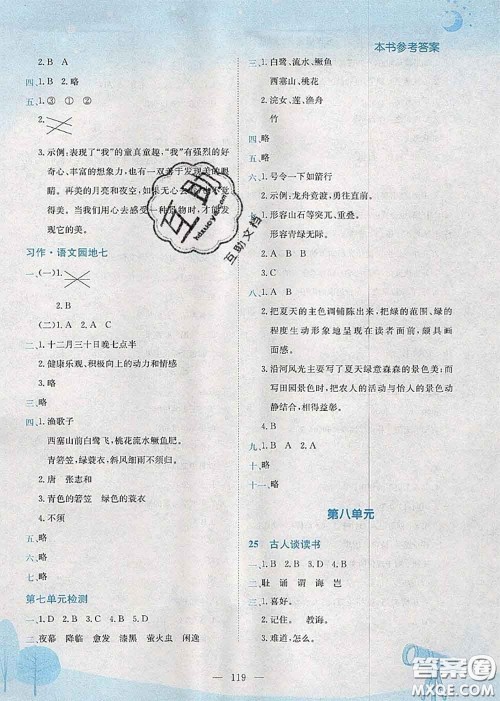 本书参考答案
2. B  A
四、1. B  2. 略
五、1. ③  ①  ②
2.
3. 示例：表现了“我”的童真童趣，“我”有强烈的好
奇心、丰富的想象力，也有一双善于发现美的眼
睛。再美的月亮和夜空，也需要有心人去发
现。当我们用心去感受一种事物时，才能发现
它的美。
习作·语文园地七
一、(一)1.
2. B
(二)1. A  2. B
二、1. 十二月三十日晚七点半
2. 健康乐观、积极向上的动力和情感
三、略
四、1. 渔歌子
西塞山前白鹭飞，桃花流水鳜鱼肥。
青箬笠，绿蓑衣，斜风细雨不须归。
2. 唐  张志和
3. 青色的箬笠  绿色的蓑衣
4. 不须
五、略
六、略
七、略
第七单元检测
一、1. D  2. A  3. A  4. B  5. D
二、夜幕  降临  愈发  漆黑  萤火虫  闲逸
三、1. 白鹭、流水、鳜鱼
西塞山、桃花
2. 浣女、莲、渔舟
竹
四、略
五、略
六、1. 号令一下如箭行
2. 示例：龙舟竞渡，勇往直前。
七、1. 形容山石等突兀、重叠。
形容青绿无际。
2. B  A
3. B
八、1. A  B
2. 把夏天的主色调铺陈出来，把绿的范围、绿的
程度生动形象地呈现在读者面前。
3. 沿河风光主要写了夏天绿意森森的景色美；而
写田园景色时，把农人的活动与怡人的景色动静
结合，相得益彰。
4. B
九、1. A  2. B
十、略
十一、略
第八单元
25  古人谈读书
一、1. B  2. B  3. D  4. A  5. D
二、耻  诵  谓  诲  岂
三、1. B  2. A
3. 示例：略
四、1. 记住。  教诲。
2. 难道。  怎么。
119
互助
hdzuoye.com
互助文档
答案圈
MXQE.COM